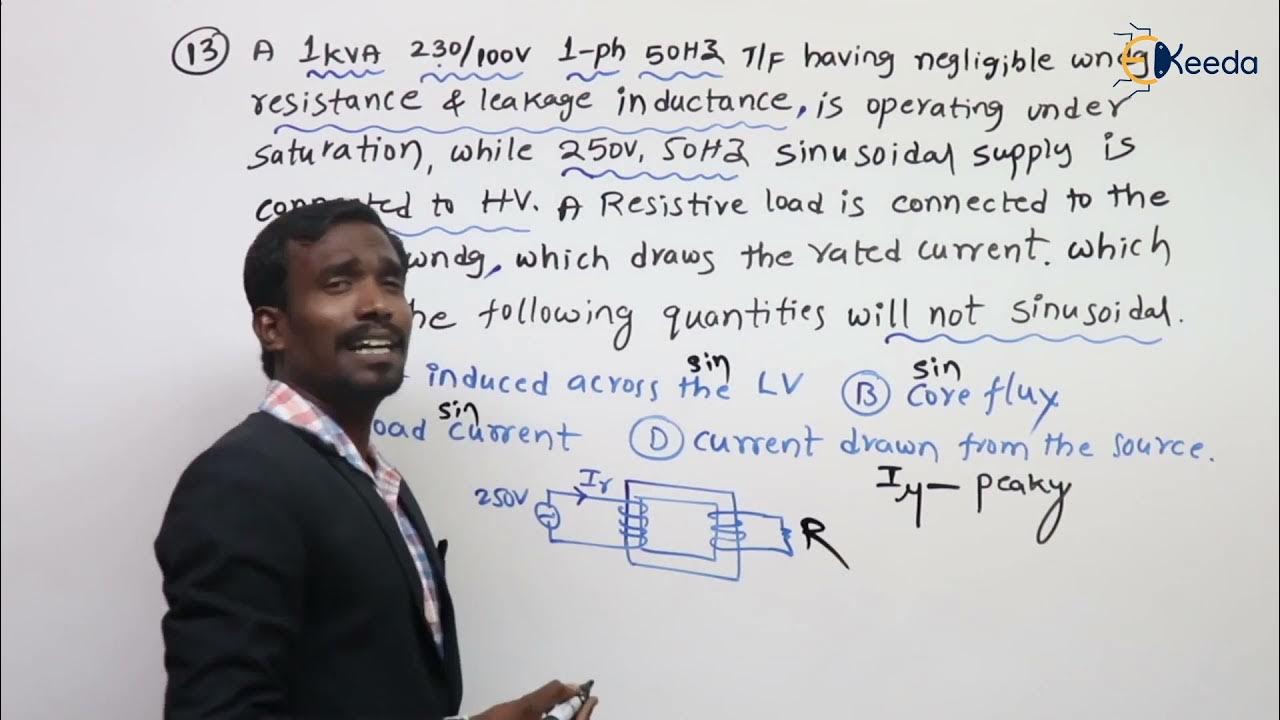 13 A 1KVA 230/100V 1-ph 50HZ T/F having negligible wndg
resistance & leakage inductance, is operating under
saturation, while 250V, 50HZ sinusoidal supply is
to HV. A Resistive load is connected to the
wndg, which draws the rated current. which
following quantities will not sinusoidal.
induced across the LV sin B core flux sin
current sin D current drawn from the source.
250V Ir R
Iμ - peaky
Keeda